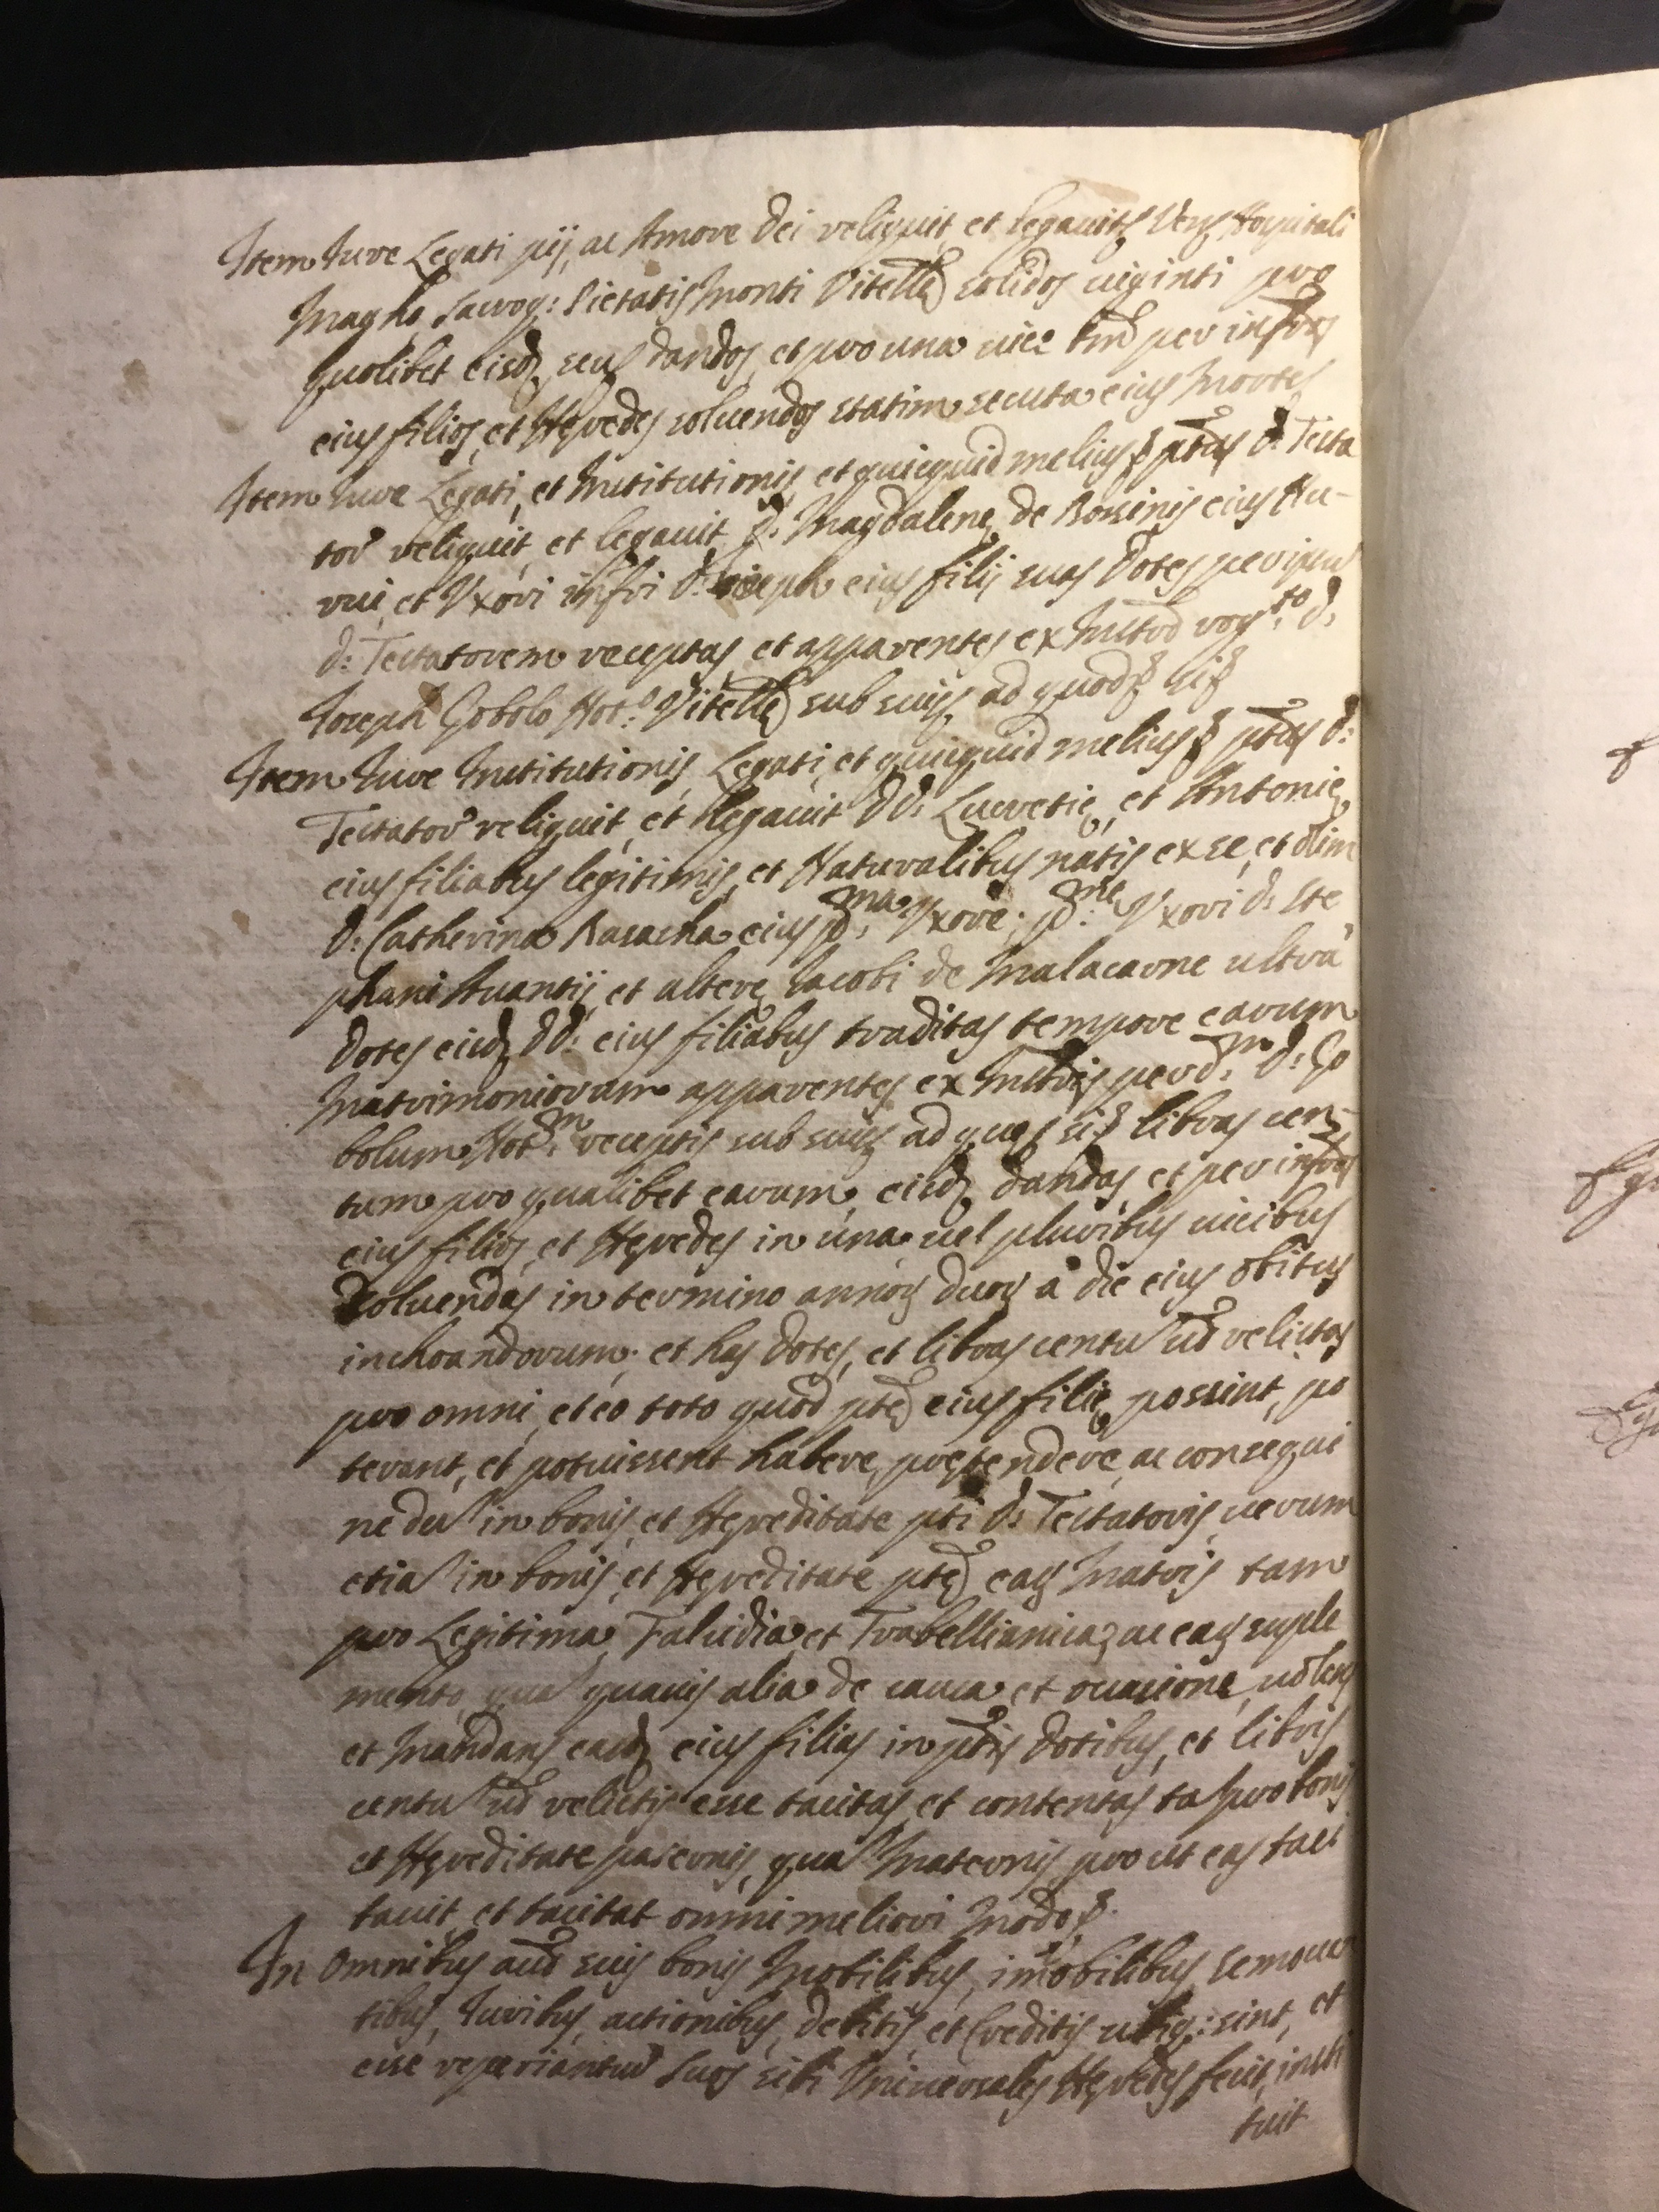 Item Iure Legati pij, ac Amore Dei reliquit, et legauit Ven: Hospitali
Magno, Sacroq: Pietatis Monti Vitellę solidos uiginti pro
quolibet eisd. seu dandos, et pro una uice tm̃ per infr̃os
eius filios, et Hęredes soluendos statim secuta eius Morte
Item Iure Legati, et Institutionis, et quicquid melius p̃tus d. Testa
tor reliquit, et legauit d. Magdalene, de Rossinis eius Nu-
rui, et Vxori infri d. Ioseph eius filij suas Dotes per ipsum
d: Testatorem receptas, et apparentes ex Instrõ rog.to d.
Ioseph Gobolo Not.o Vitellę sub suis, ad quod
Item Iure Institutionis, Legati, et quicquid melius p̃tus d:
Testator reliquit, et legauit DD. Lucretię, et Antonię
eius filiabus legitimis, et Naturalibus natis ex se, et olim
d: Catherina Rasacha eius p.ma Vxore; p.me Vxori d: Ste
phani Auantij, et alterę Iacobi de Malacarne ultrà
Dotes eisd. DD. eius filiabus traditas tempore earum
Matrimoniorum apparentes ex Instr̃is per d.m d: Go
bolum Not.m receptis sub suis ad que libras cen-
tum pro qualibet earum, eisd. dandas, et per infr̃os
eius filios, et Hęredes in una uel pluribus uicibus
Soluendas in termino annoꝝ duoꝝ à die eius obitus
inchoandorum; et has Dotes, et libras centũ ut̃ relictas
pro omni, et eo toto quod p̃tę eius filię possint, po
terant, et potuissent habere, prętendere, ac consequi
nedũ in bonis, et Hęreditate p̃ti d: Testatoris, uerum
etiã in bonis, et Hęreditate p̃tę eaꝝ Matris tam
pro Legitima, Falcidia et Trabellianica, ac eaꝝ suple
mento quã quauis alia de causa, et occasione, uolens
et Mandans easd. eius filias in p̃tis Dotibus, et libris
centũ ut̃ relictis esse tacitas, et contentas tã pro bonis
et Hęreditate paternis, quã Maternis, pro ut eas taci
tauit, et tacitat omni meliori Modo
In Omnibus aut̃ suis bonis Mobilibus, im̃obilibus, semouen
tibus, Iuribus, actionibus, debitis, et Creditis ubiq: sint, et
esse reperiantur Suos sibi Vniuersales Hęredes fecit, insti
tuit